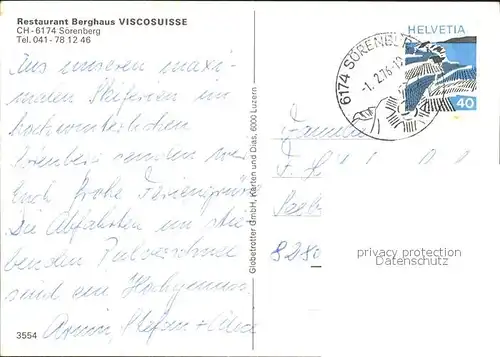 Restaurant Berghaus VISCOSUISSE
CH-6174 Sörenberg
Tel. 041 - 78 12 46
HELVETIA
40
6174 SÖRENBERG
-1.2.76-1
Aus unseren maxi-
malen Skiferien im
hochwinterlichen
Sörenberg senden wir
Euch frohe Feriengrüsse
Die Abfahrten im stie-
benden Pulverschnee
sind ein Hochgenuss.
Armin, Stefan +
Familie
F. H
8280
Globetrotter GmbH, Karten und Dias, 6000 Luzern
privacy protection
Datenschutz
3554